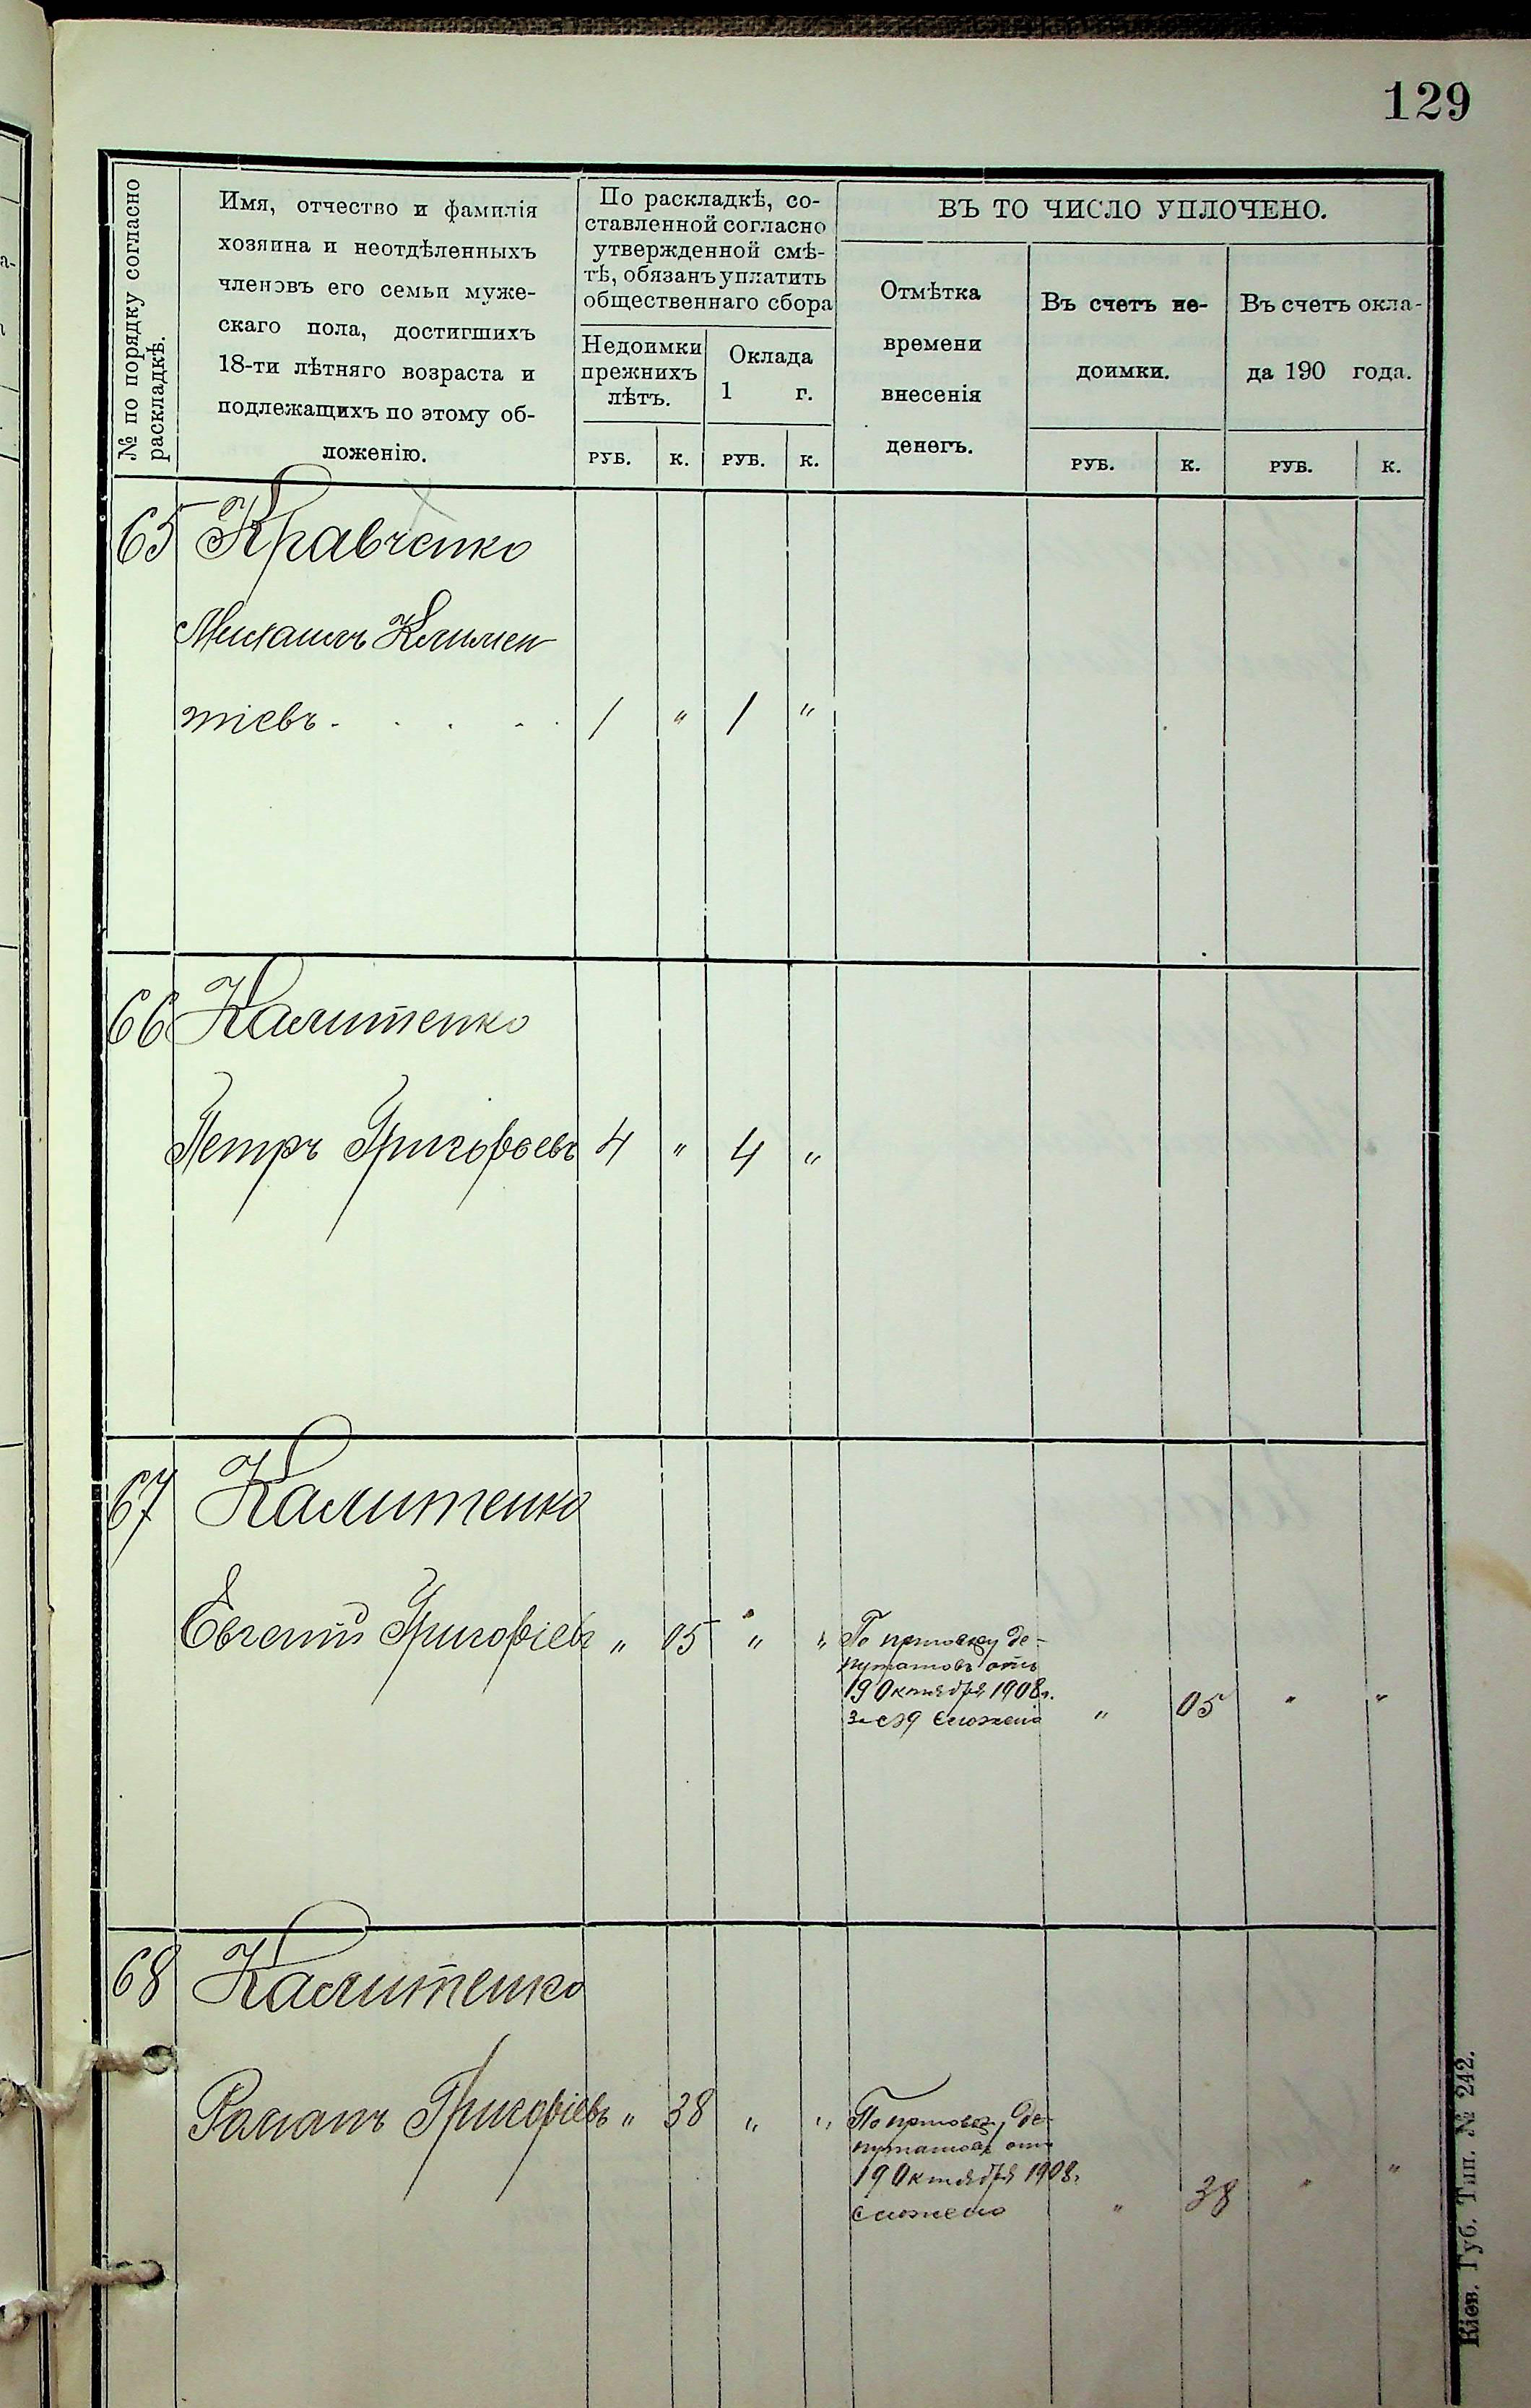 129
№ по порядку согласно
раскладкѣ.
Имя, отчество и фамилія
хозяина и неотдѣленныхъ
членовъ его семьи муже-
скаго пола, достигшихъ
18-ти лѣтняго возраста и
подлежащихъ по этому об-
ложенію.
По раскладкѣ, со-
ставленной согласно
утвержденной смѣ-
тѣ, обязанъ уплатить
общественнаго сбора
Недоимки
прежнихъ
лѣтъ.
Оклада
1 г.
РУБ. К. РУБ. К.
ВЪ ТО ЧИСЛО УПЛОЧЕНО.
Отмѣтка
времени
внесенія
денегъ.
Въ счетъ не-
доимки.
РУБ. К.
Въ счетъ окла-
да 190 года.
РУБ. К.
65 Кравченко
Михаилъ Климен
тіевъ - . . . . 1 " 1 "
66 Калитенко
Петръ Григорьевъ 4 " 4 "
67 Калитенко
Евгеній Григоріевъ " 05 " "
По приговору де-
путатовъ отъ
19 Октября 1908 г.
за сложено " 05 " "
68 Калитенко
Романъ Григоріевъ " 38 " "
По приговору де-
путатовъ отъ
19 Октября 1908 г.
Сложено " 38 " "
Кіев. Губ. Тип. № 242.